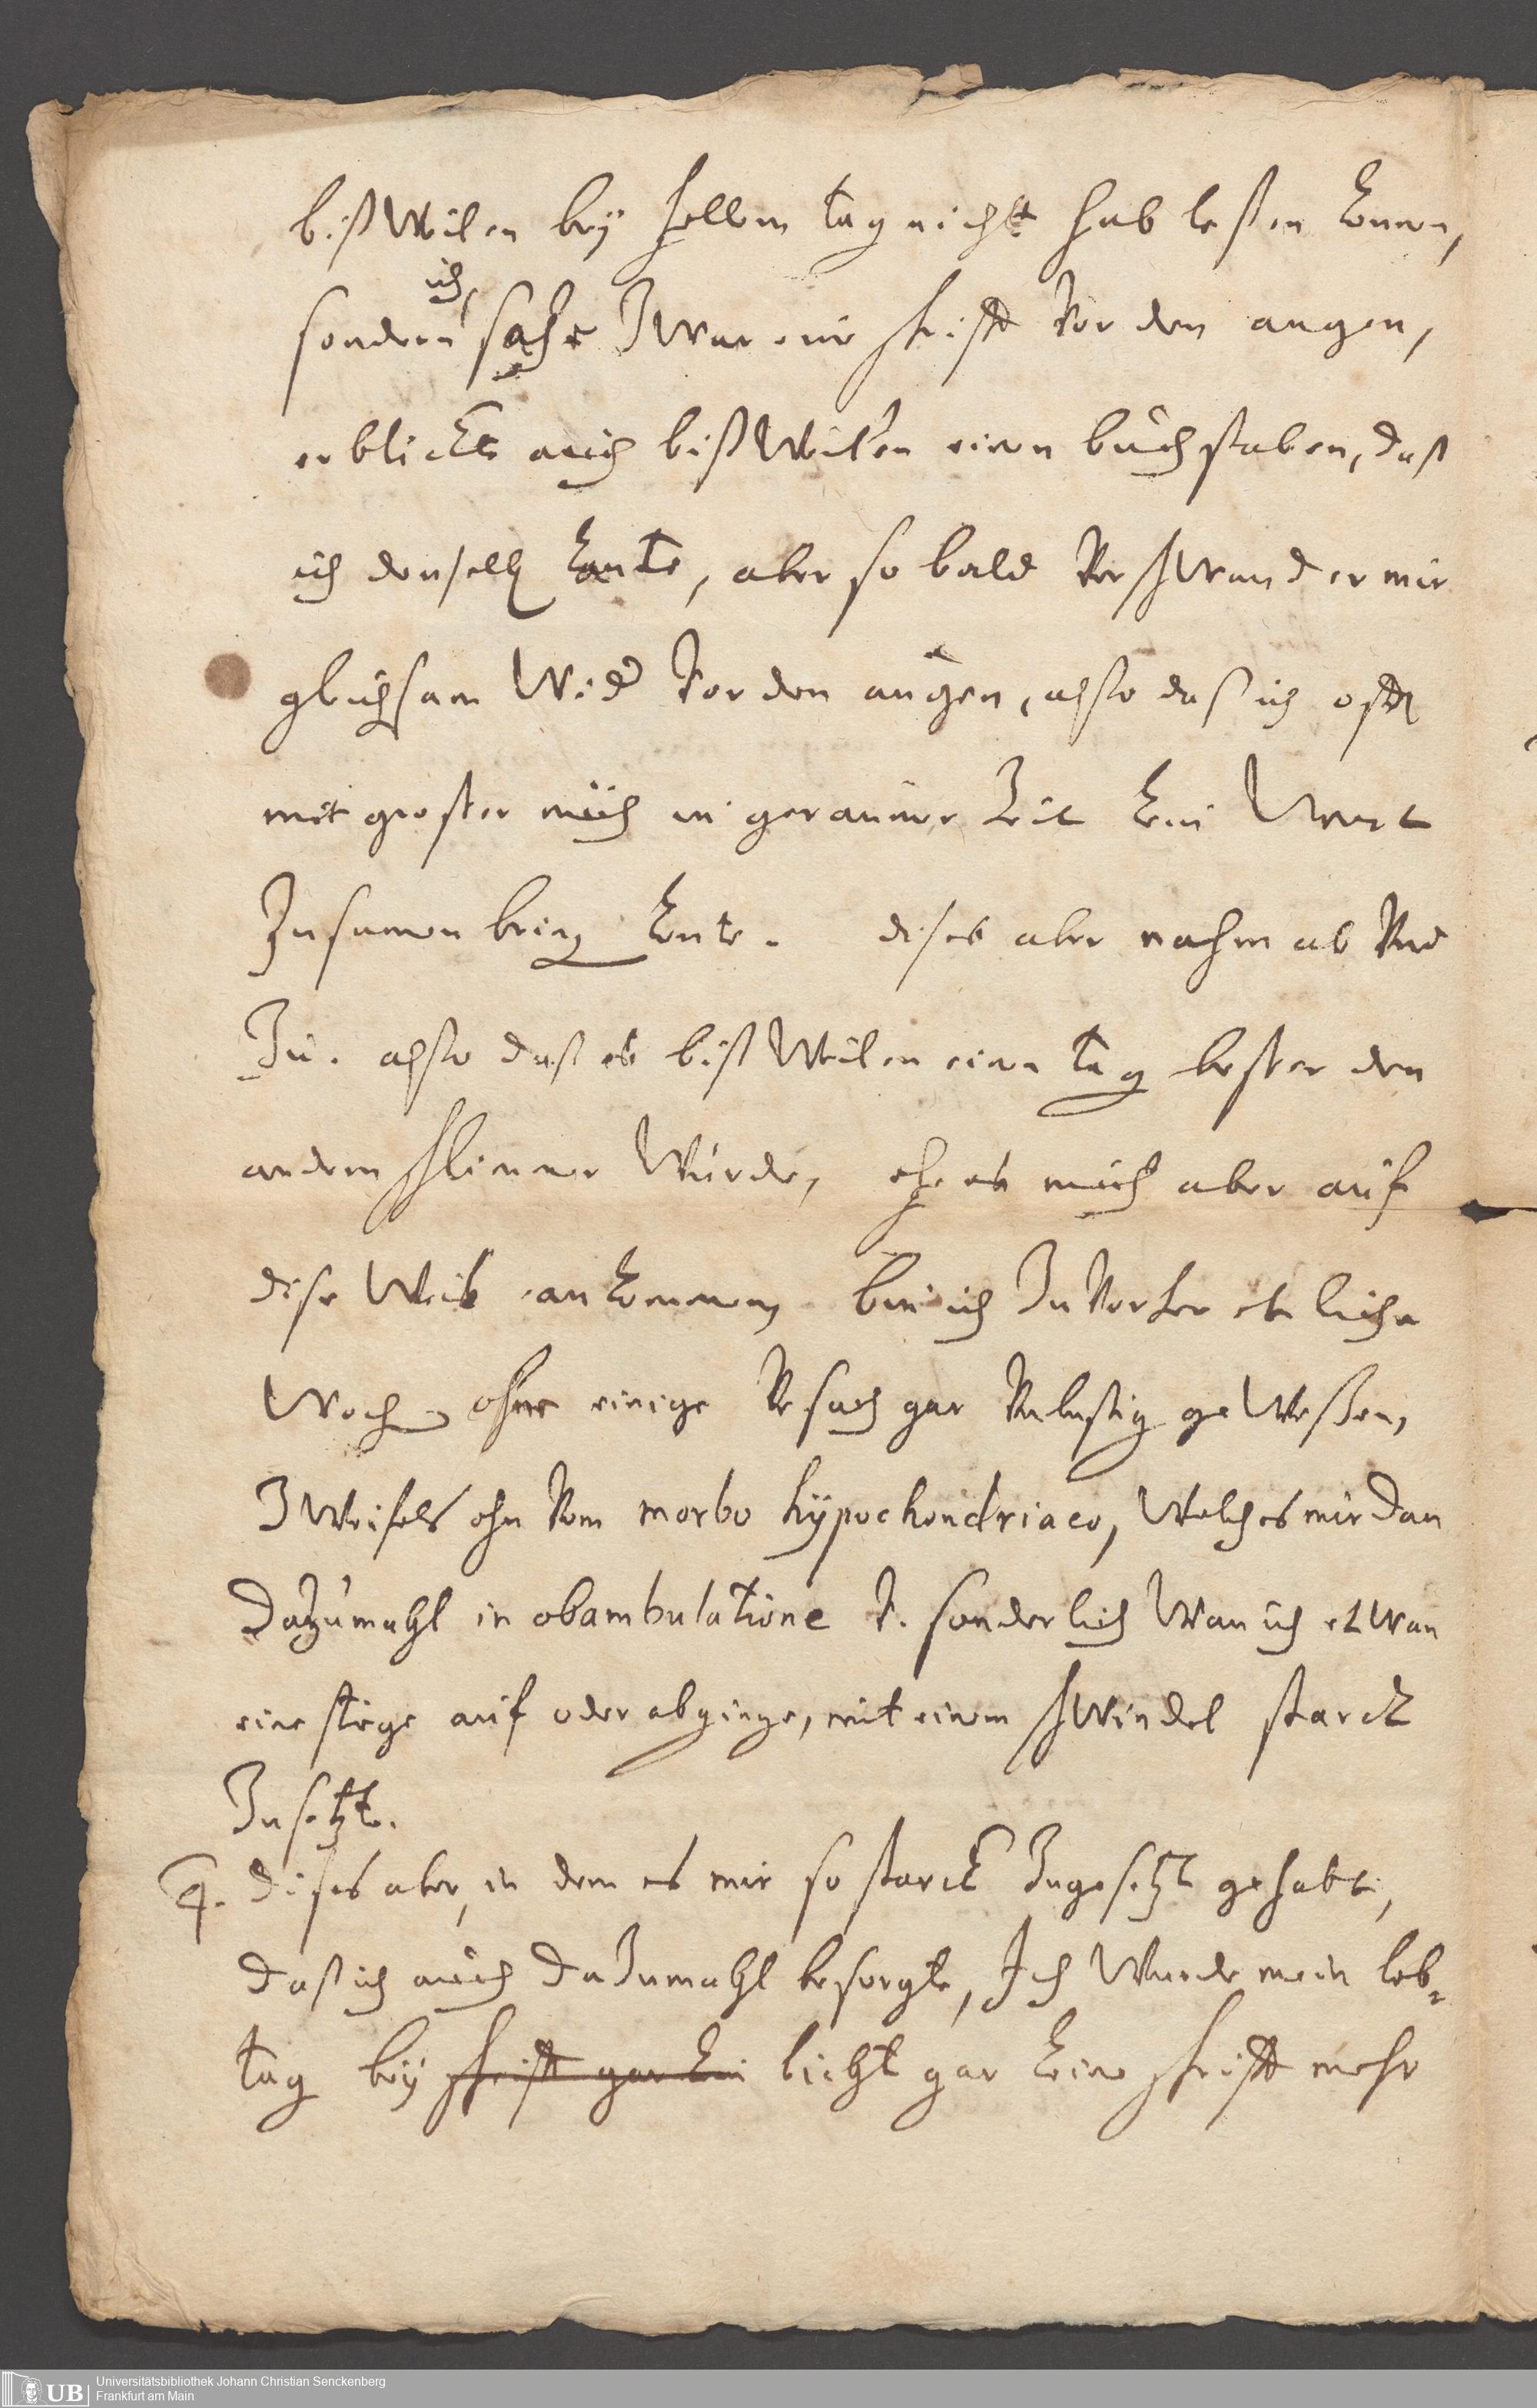 bißweilen beÿ hellem tag nicht hab leßen konnen,
ich
sondern sahe zwar ein schrifft vor den augen,
erblickte auch bißweilen einen buchstaben, daß
ich denselben kante, aber so bald verschwand er mir
gleichsam wider vor den augen, also daß ich offt
mit großer müh in geraumer Zeit kein Wort
Zusamen bringen konte. dises aber nahm ab vnd
Zu. also daß es bißweilen einen tag besser den
andern schlimmer würde, ehe es mich aber auf
dise Weis ankommen, bin ich Zu vorher etliche
Wochen ohne einige vrsach gar vnlustig geweßen,
Zweifels ohn vom morbo hÿpochondriaco, welches mir dan
dazumahl in obambulatione v. sonderlich wan ich etwan
eine stiege auf oder abginge, mit einem schwindel starck
Zusetzte.
4. dises aber, in dem es mir so starck Zugesetzt gehabt,
daß ich auch daZumahl besorgte, Ich wurde mein leb-
tag beÿ schrifft gar kein licht gar keine schrifft mehr
Universitätsbibliothek Johann Christian Senckenberg
Frankfurt am Main
UB